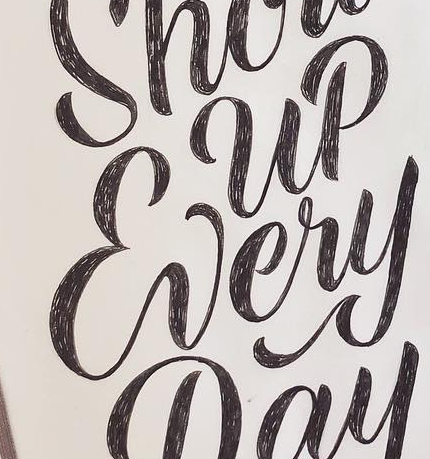 Show
up
Every
Day